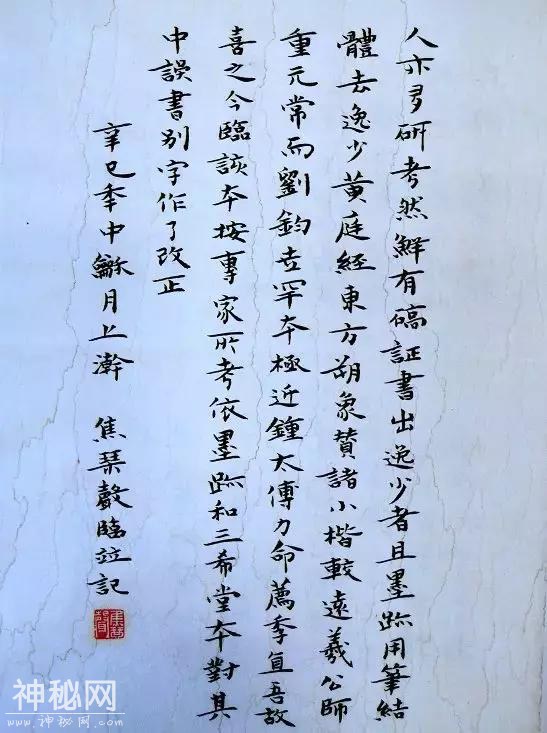 人亦多研考然鮮有碻証書出逸少者且墨跡用筆結
體去逸少黄庭經東方朔象賛諸小楷較遠羲公師
重元常而劉鈞吉罕本極近鍾太傅力命薦季直吾故
喜之今臨該本按專家所考依墨跡和三希堂本對其
中誤書别字作了改正
辛巳年中龢月上澣 焦琹聲臨竝記
神秘网
www.神秘网.com